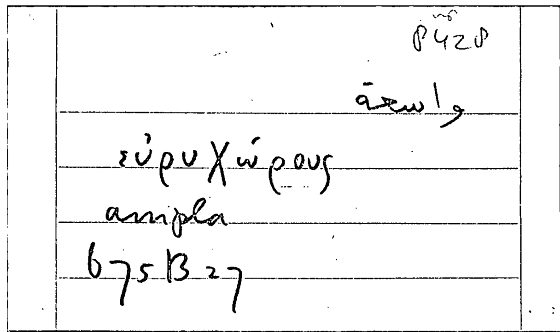 واسعة
εὐρυχώρους
ampla
675B27